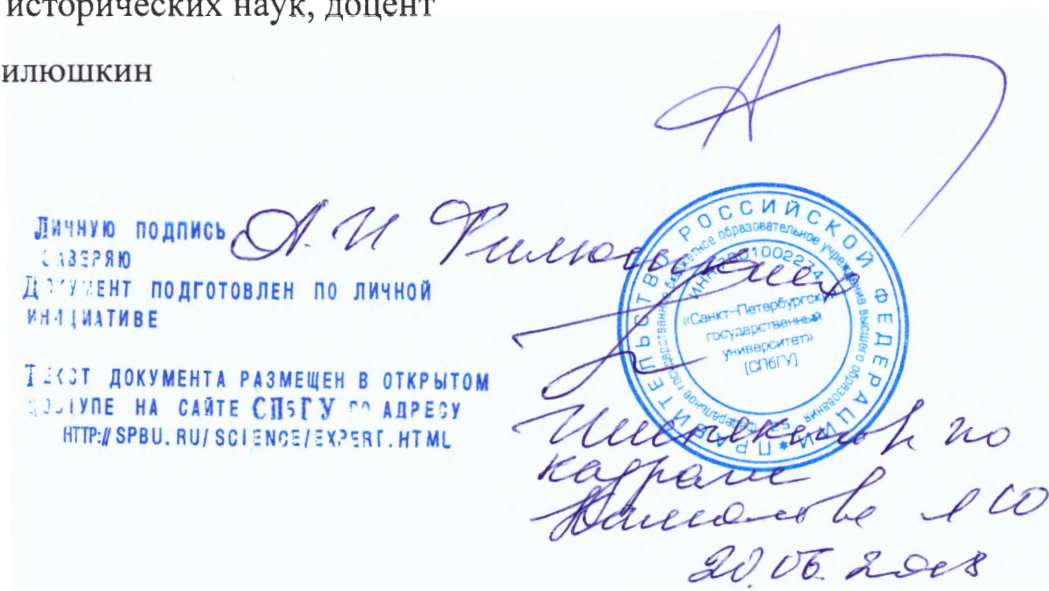 исторических наук, доцент
илюшкин
Личную подпись А.И Филюшкина
заверяю
Документ подготовлен по личной
инициативе
Текст документа размещен в открытом
доступе на сайте СПбГУ по адресу
HTTP://SPBU.RU/SCIENCE/EXPERT.HTML
ПРАВИТЕЛЬСТВО РОССИЙСКОЙ ФЕДЕРАЦИИ
«Санкт-Петербургский
государственный
университет»
(СПбГУ)
по
кадрам
20.06.2018